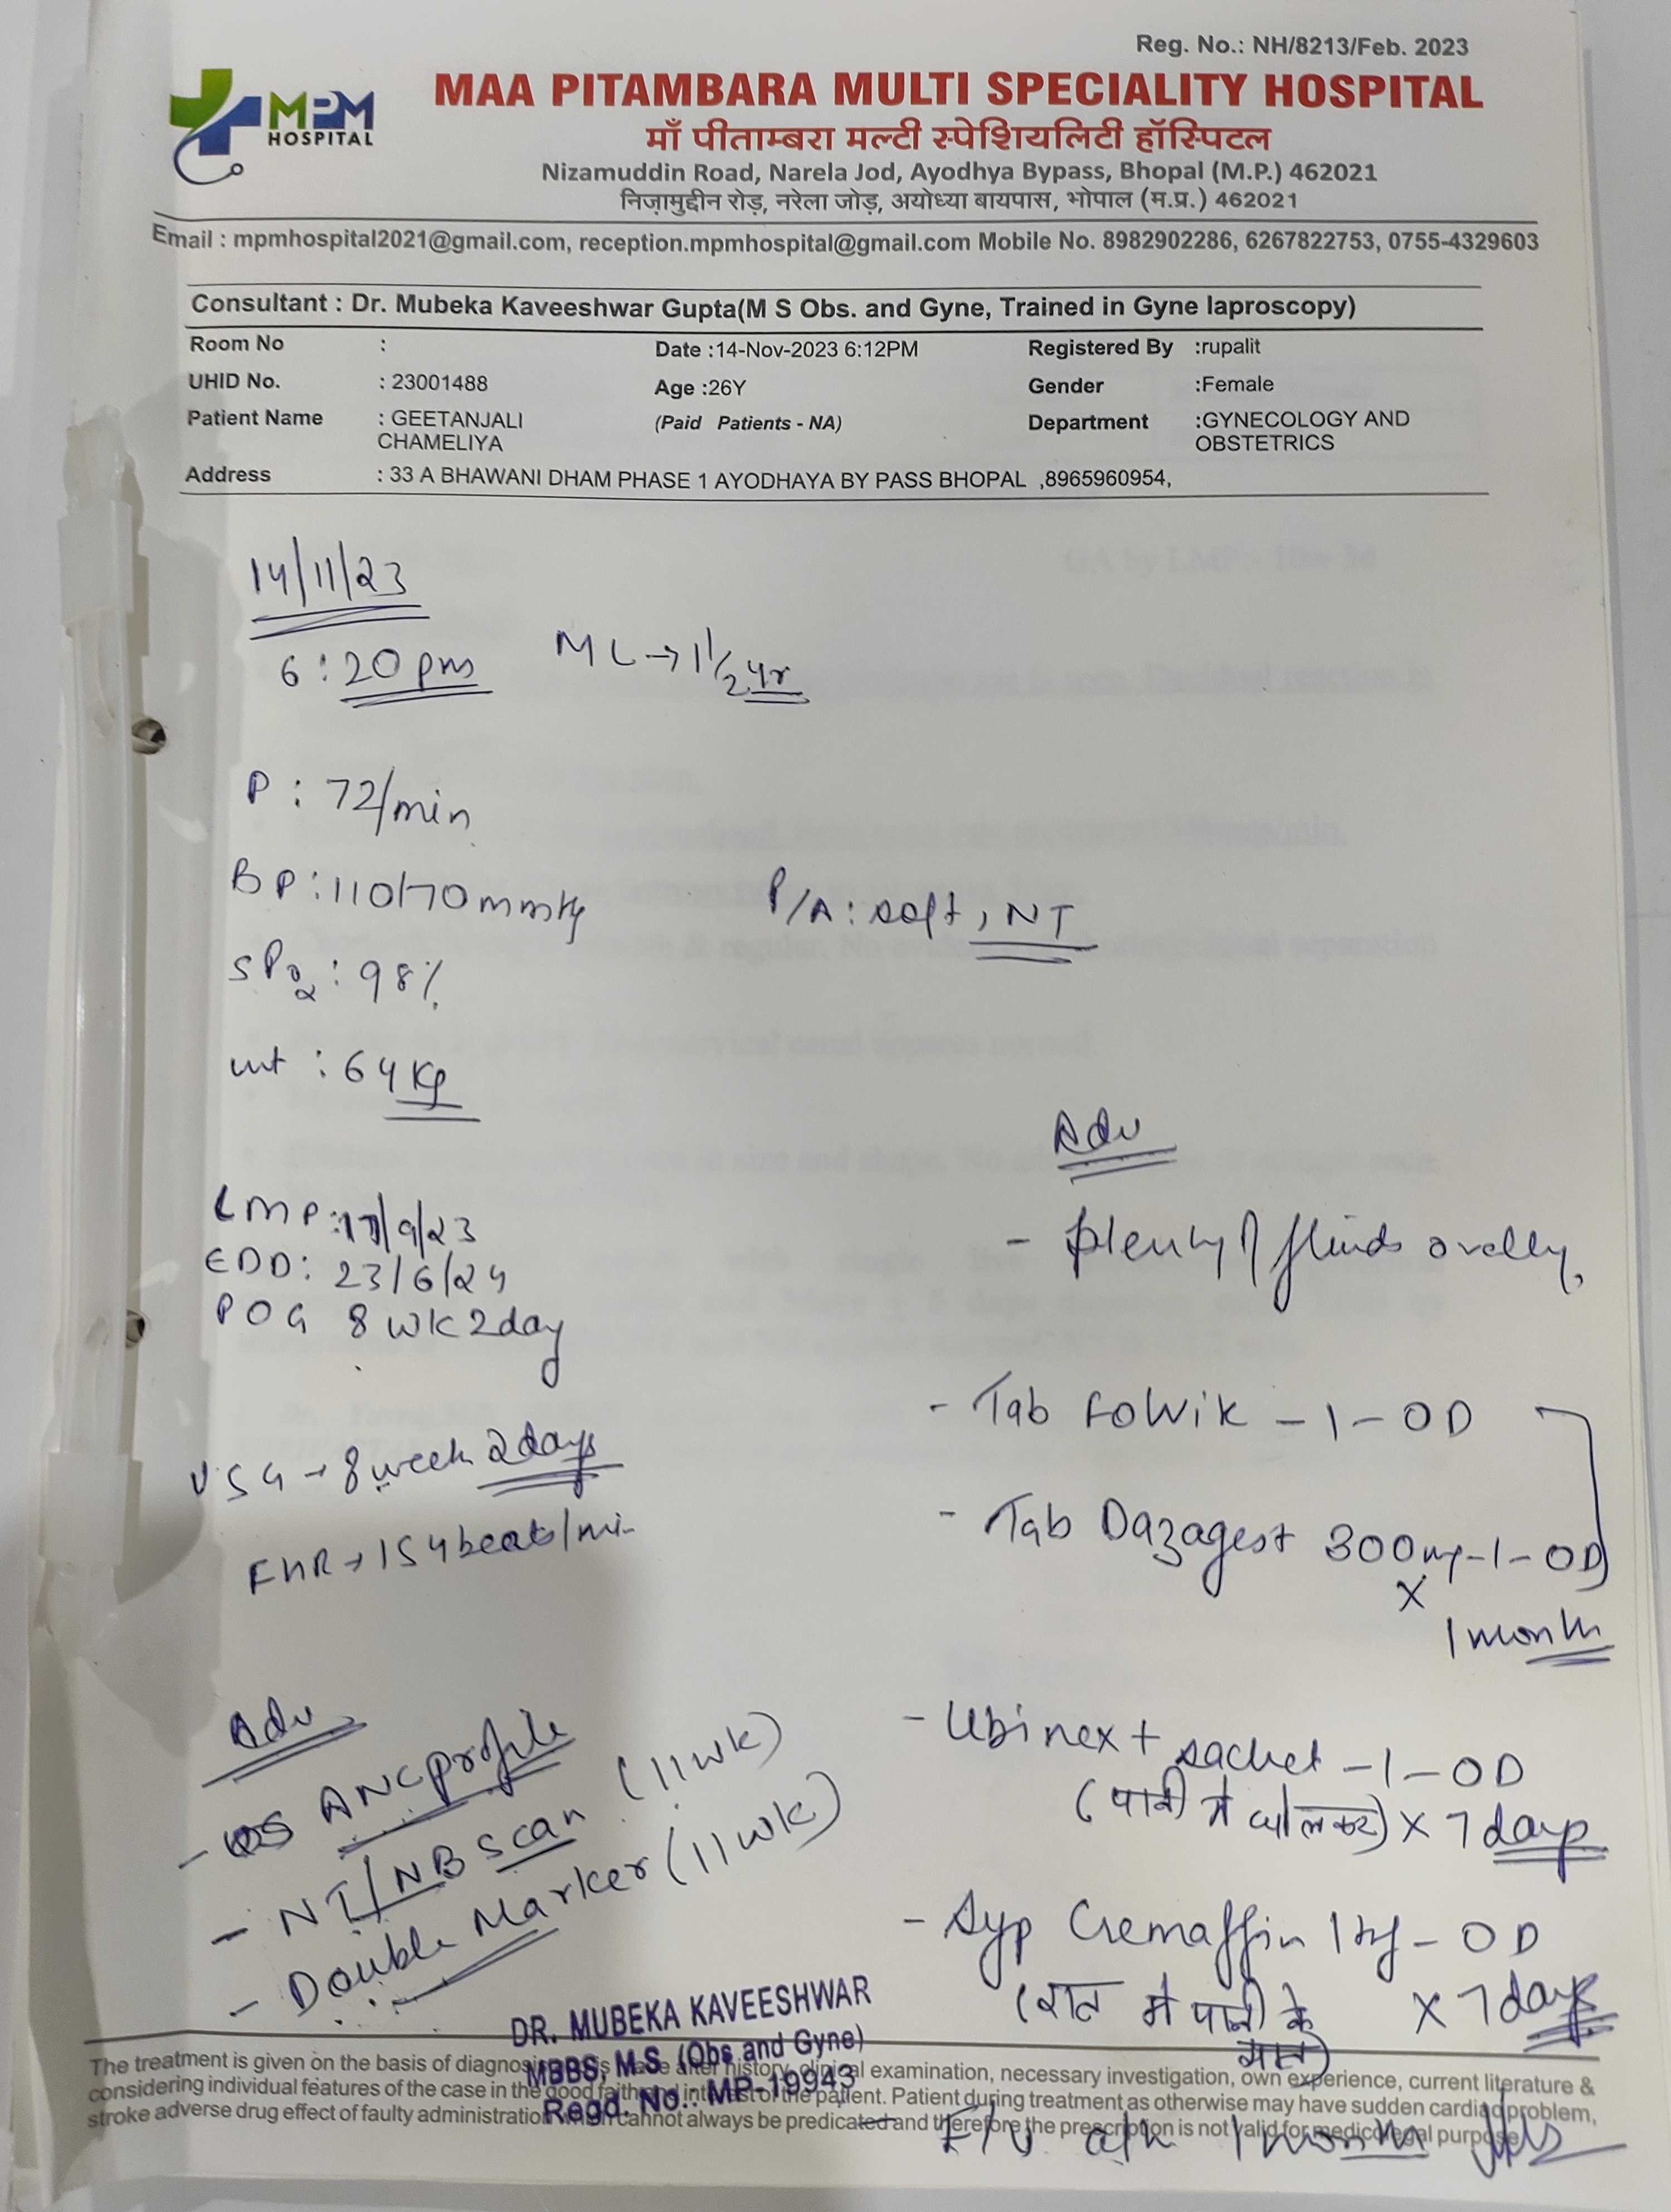 Reg. No.: NH/8213/Feb. 2023
MPM
HOSPITAL
MAA PITAMBARA MULTI SPECIALITY HOSPITAL
माँ पीताम्बरा मल्टी स्पेशियलिटी हॉस्पिटल
Nizamuddin Road, Narela Jod, Ayodhya Bypass, Bhopal (M.P.) 462021
निज़ामुद्दीन रोड़, नरेला जोड़, अयोध्या बायपास, भोपाल (म.प्र.) 462021
Email : mpmhospital2021@gmail.com, reception.mpmhospital@gmail.com Mobile No. 8982902286, 6267822753, 0755-4329603
Consultant : Dr. Mubeka Kaveeshwar Gupta(M S Obs. and Gyne, Trained in Gyne laproscopy)
Room No : Date :14-Nov-2023 6:12PM Registered By :rupalit
UHID No. : 23001488 Age :26Y Gender :Female
Patient Name : GEETANJALI CHAMELIYA (Paid Patients - NA) Department :GYNECOLOGY AND OBSTETRICS
Address : 33 A BHAWANI DHAM PHASE 1 AYODHAYA BY PASS BHOPAL ,8965960954,
14/11/23
6:20pm ML→1 1/2 yr
P : 72/min
BP : 110/70 mmHg P/A : soft, NT
SPO2 : 98%
wt : 64 Kg
LMP : 17/9/23
EDD : 23/6/24
POG 8 wk 2day
USG → 8 week 2 days
FHR → 154 beats/min
Adv
- ANC profile
- NT/NB scan (11 wk)
- Double Marker (11 wk)
Adv
- plenty of fluids orally
- Tab Folvik - 1 - OD
- Tab Dazagest 300mg - 1 - OD
x
1 month
- Ubinex + sachet - 1 - OD
(पानी मे घोलकर) x 7 days
- Syp Cremaffin - OD
(रात मे पानी के साथ) x 7 days
F/U a/h 1 month
DR. MUBEKA KAVEESHWAR
MBBS, M.S (Obs and Gyne)
Regd. No.: MP-19943
The treatment is given on the basis of diagnosis made after history, clinical examination, necessary investigation, own experience, current literature &
considering individual features of the case in the good faith and interest of the patient. Patient during treatment as otherwise may have sudden cardiac problem,
stroke adverse drug effect of faulty administration which cannot always be predicated and therefore the prescription is not valid for medicolegal purpose